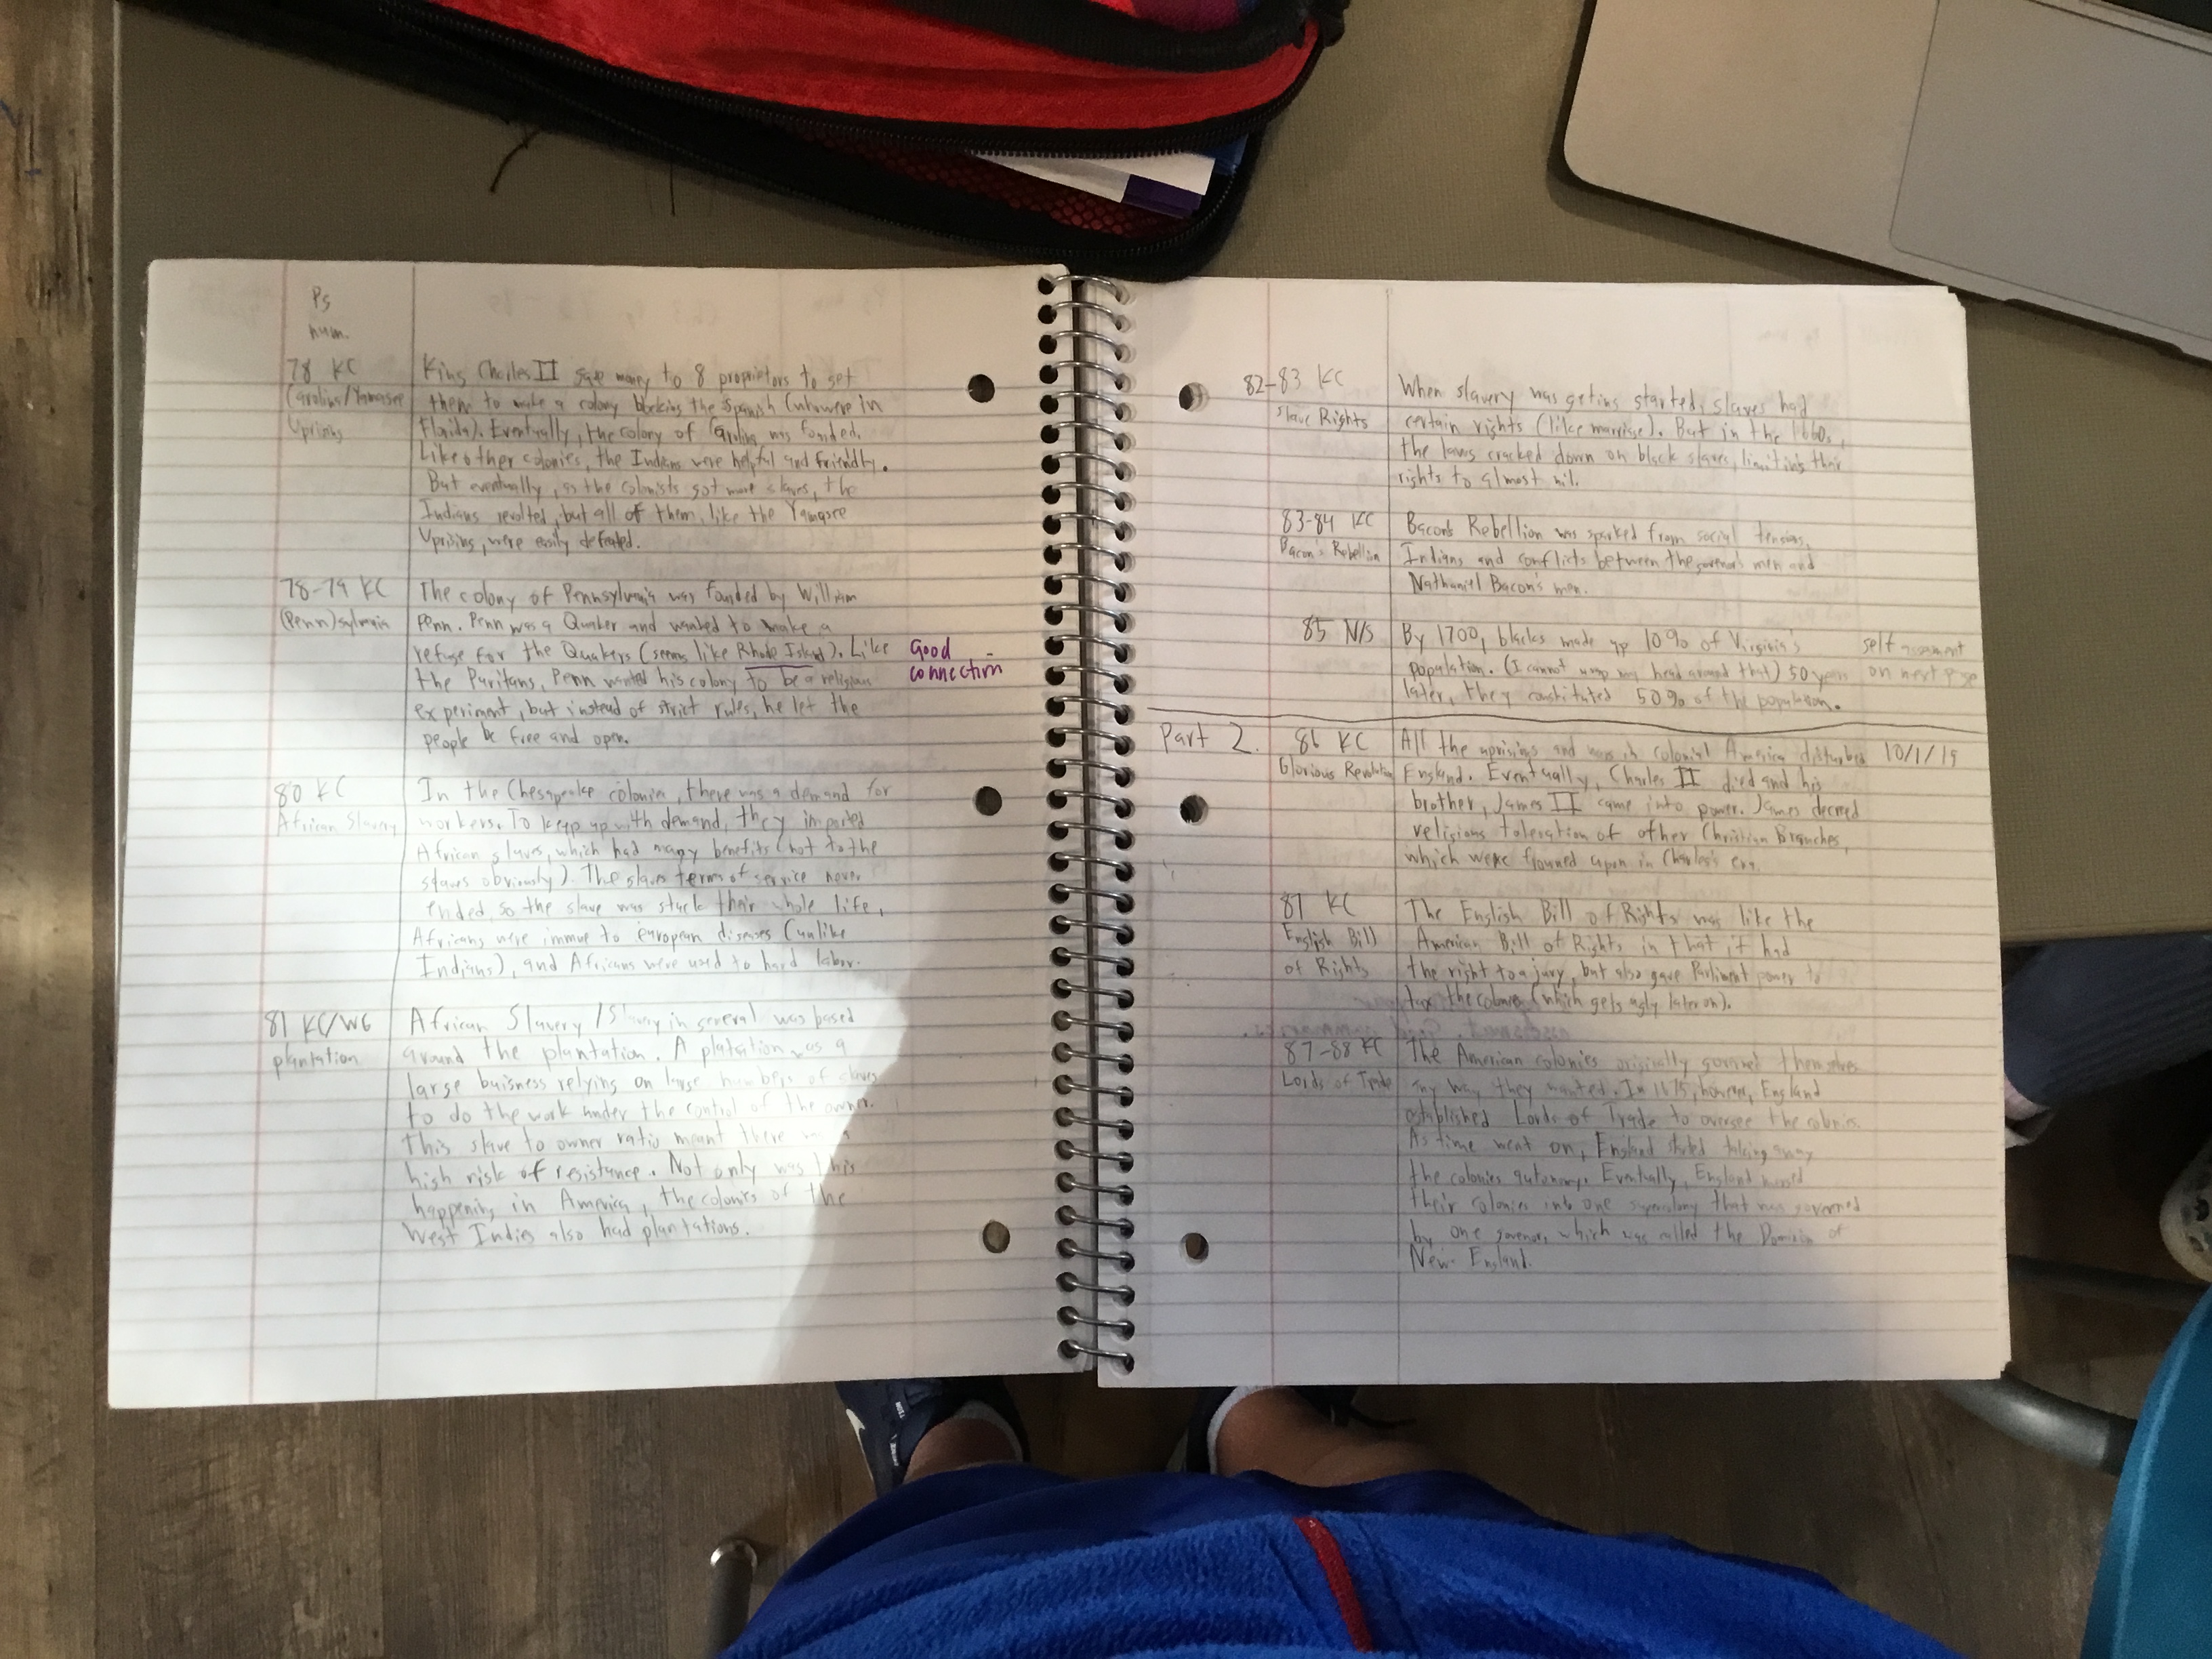 Pg
num.
78 KC
Carolina/Yamasee
Uprising
King Charles II gave money to 8 proprietors to get
them to make a colony blocking the Spanish (who were in
Florida). Eventually, the colony of Carolina was founded.
Like other colonies, the Indians were helpful and friendly.
But eventually, as the colonists got more slaves, the
Indians revolted, but all of them, like the Yamasee
Uprising, were easily defeated.
78-79 KC
(Penn)sylvania
The colony of Pennsylvania was founded by William
Penn. Penn was a Quaker and wanted to make a
refuge for the Quakers (seems like Rhode Island). Like
the Puritans, Penn wanted his colony to be a religious
experiment, but instead of strict rules, he let the
people be free and open.
Good
connection
80 KC
African Slavery
In the Chesapeake colonies, there was a demand for
workers. To keep up with demand, they imported
African slaves, which had many benefits (not to the
slaves obviously). The slaves terms of service never
ended, so the slave was stuck their whole life,
Africans were immue to european diseases (unlike
Indians), and Africans were used to hard labor.
81 KC/WG
plantation
African Slavery / Slavery in general was based
around the plantation. A platation was a
large buisness relying on large numbers of slaves
to do the work under the control of the owner.
This slave to owner ratio meant there was a
high risk of resistance. Not only was this
happening in America, the colonies of the
West Indies also had plantations.
82-83 KC
Slave Rights
When slavery was geting started, slaves had
certain rights (like marrige). But in the 1660s,
the laws cracked down on black slaves, limiting their
rights to almost nil.
83-84 KC
Bacon's Rebellion
Bacon's Rebellion was sparked from social tensions,
Indians and conflicts between the govenor's men and
Nathaniel Bacon's men.
85 N/S
By 1700, blacks made up 10% of Virginia's
population. (I cannot wrap my head around that) 50 years
later, they constituted 50% of the population.
self assesment
on next page
Part 2.
86 KC
Glorious Revolution
All the uprisings and wars in colonial America disturbed
England. Eventually, Charles II died and his
brother, James II came into power. James decreed
religious toleration of other Christian Branches,
which were frowned upon in Charles's era.
10/1/19
87 KC
English Bill
of Rights
The English Bill of Rights was like the
American Bill of Rights in that it had
the right to a jury, but also gave Parliment power to
tax the colonies (which gets ugly later on).
87-88 KC
Lords of Trade
The American colonies originally governed themselves
any way they wanted. In 1675, however, England
established Lords of Trade to oversee the colonies.
As time went on, England started taking away
the colonies autonomy. Eventually, England
their colonies into one supercolony that was governed
by one govenor, which was called the Dominion of
New England.